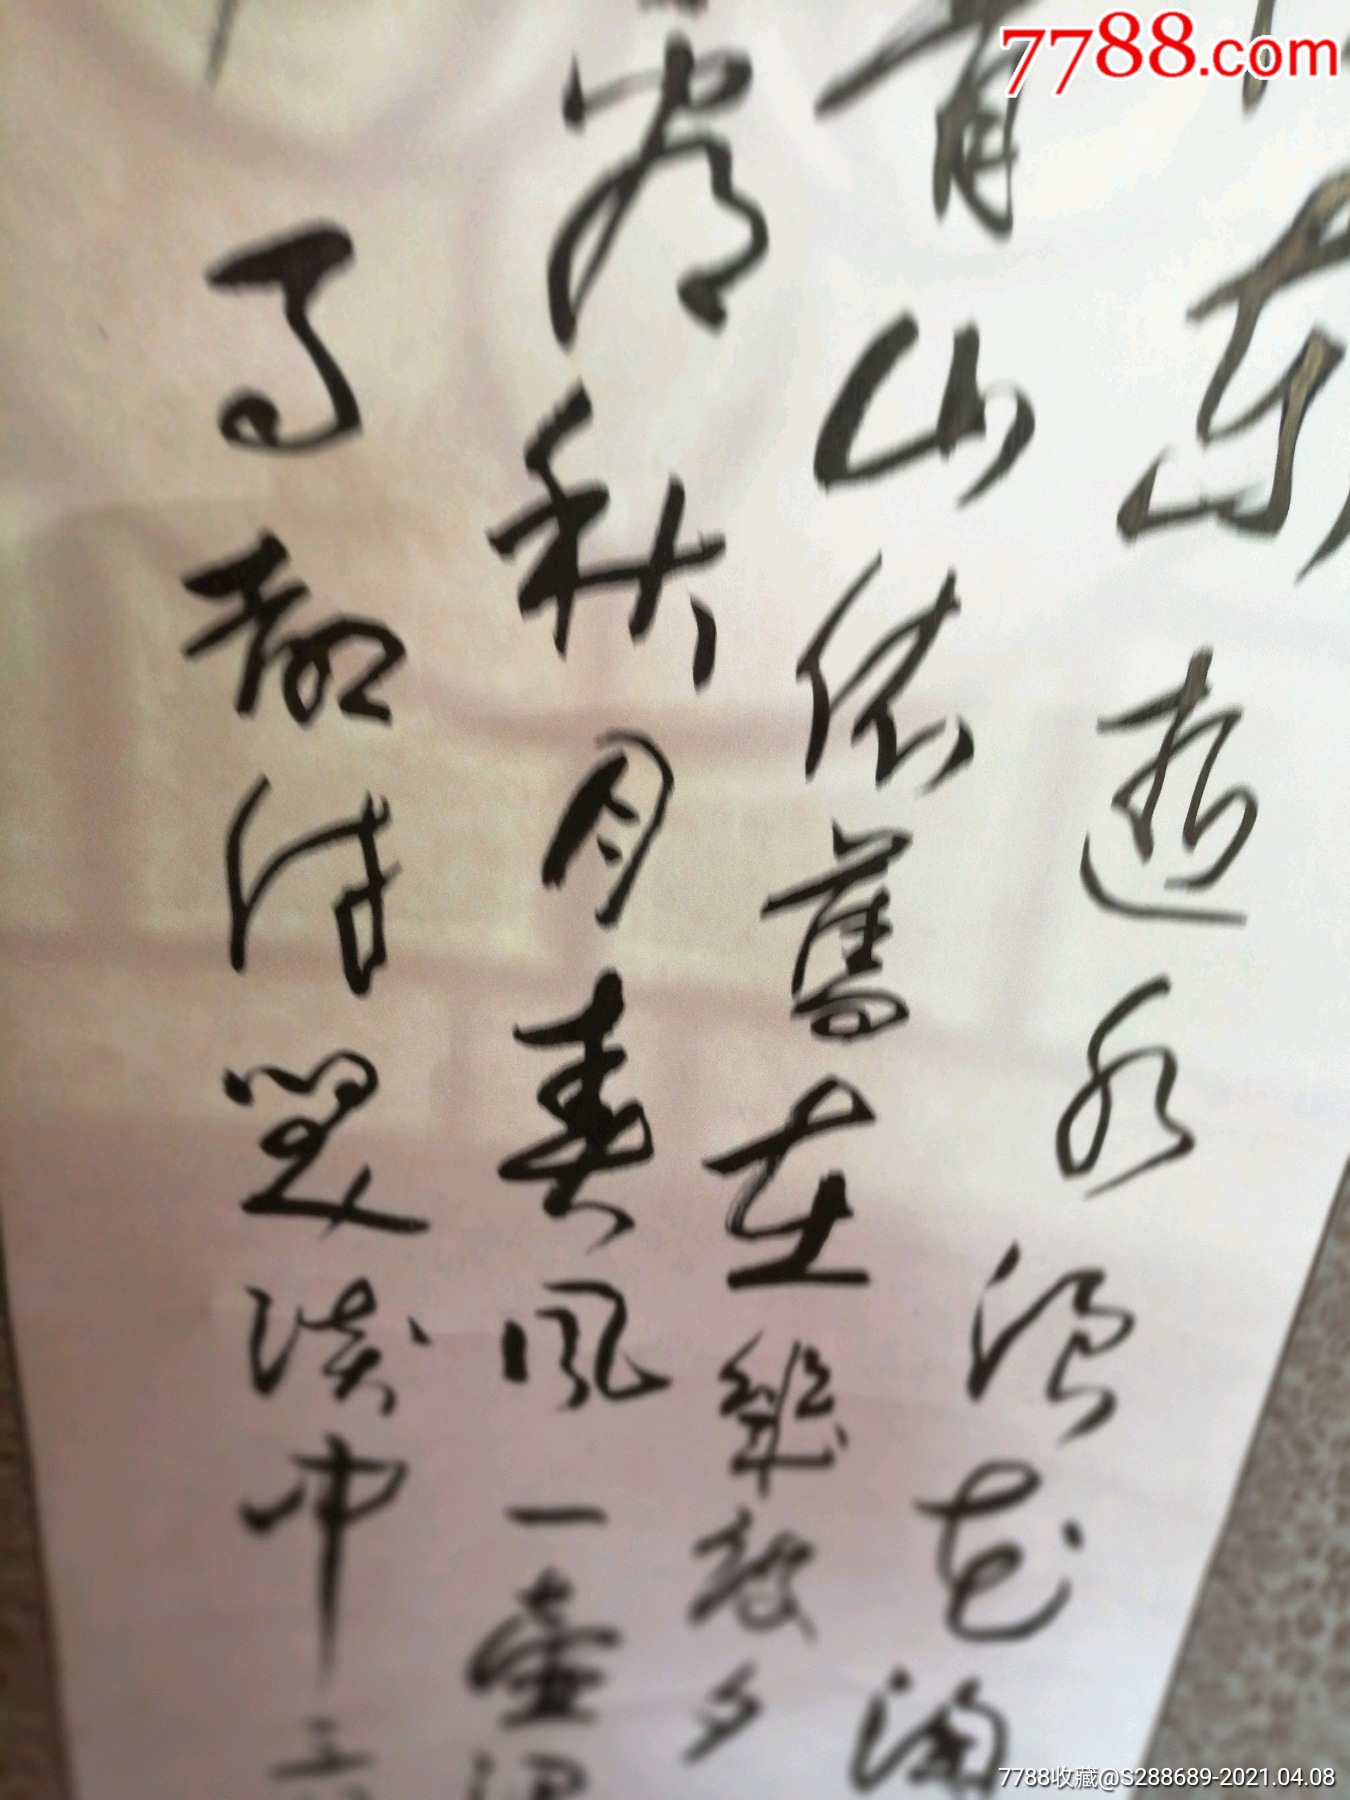 7788.com
东逝水浪花淘
青山依舊在幾度夕
看秋月春風一壺
事都付笑談中
7788收藏@S288689-2021.04.08